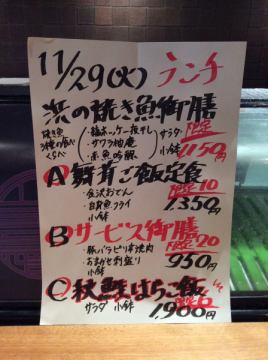 11/29(火) ランチ
浜の焼き魚御膳
焼き魚
3種の食べ
くらべ
・縞ホッケ一夜干し
・サワラ柚庵
・赤魚吟醸
サラダ
小鉢
限定
1150円
A 舞茸ご飯定食
・金沢おでん
・白身魚フライ
小鉢
限定10
1350円
B サービス御膳
・豚バラピリ辛焼肉
・おまかせ刺盛り
小鉢
限定20
950円
C 秋鮭はらこ飯
サラダ 小鉢
1,900円